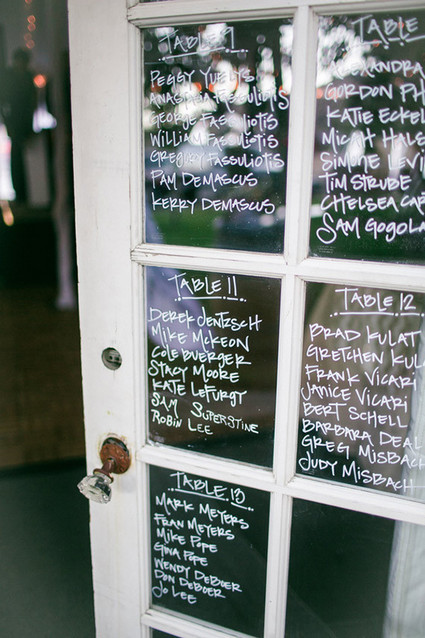 Table 7
Peggy Yuelys
Anastasia Fassuliotis
George Fassuliotis
William Fassuliotis
Gregory Fassuliotis
Pam Demascus
Kerry Demascus
Table
Alexandra
Gordon Ph
Katie Eckel
Micah Hals
Simone Levi
Tim Strube
Chelsea Car
Sam Gogola
Table 11
Derek Jentzsch
Mike McKeon
Cole Buerger
Stacy Moore
Kate LeFurgy
Sam Superstine
Robin Lee
Table 12
Brad Kulat
Gretchen Kul
Frank Vicari
Janice Vicari
Bert Schell
Barbara Deal
Greg Misbach
Judy Misbach
Table 13
Mark Meyers
Fran Meyers
Mike Pope
Gina Pope
Wendy DeBoer
Don DeBoer
Jo Lee